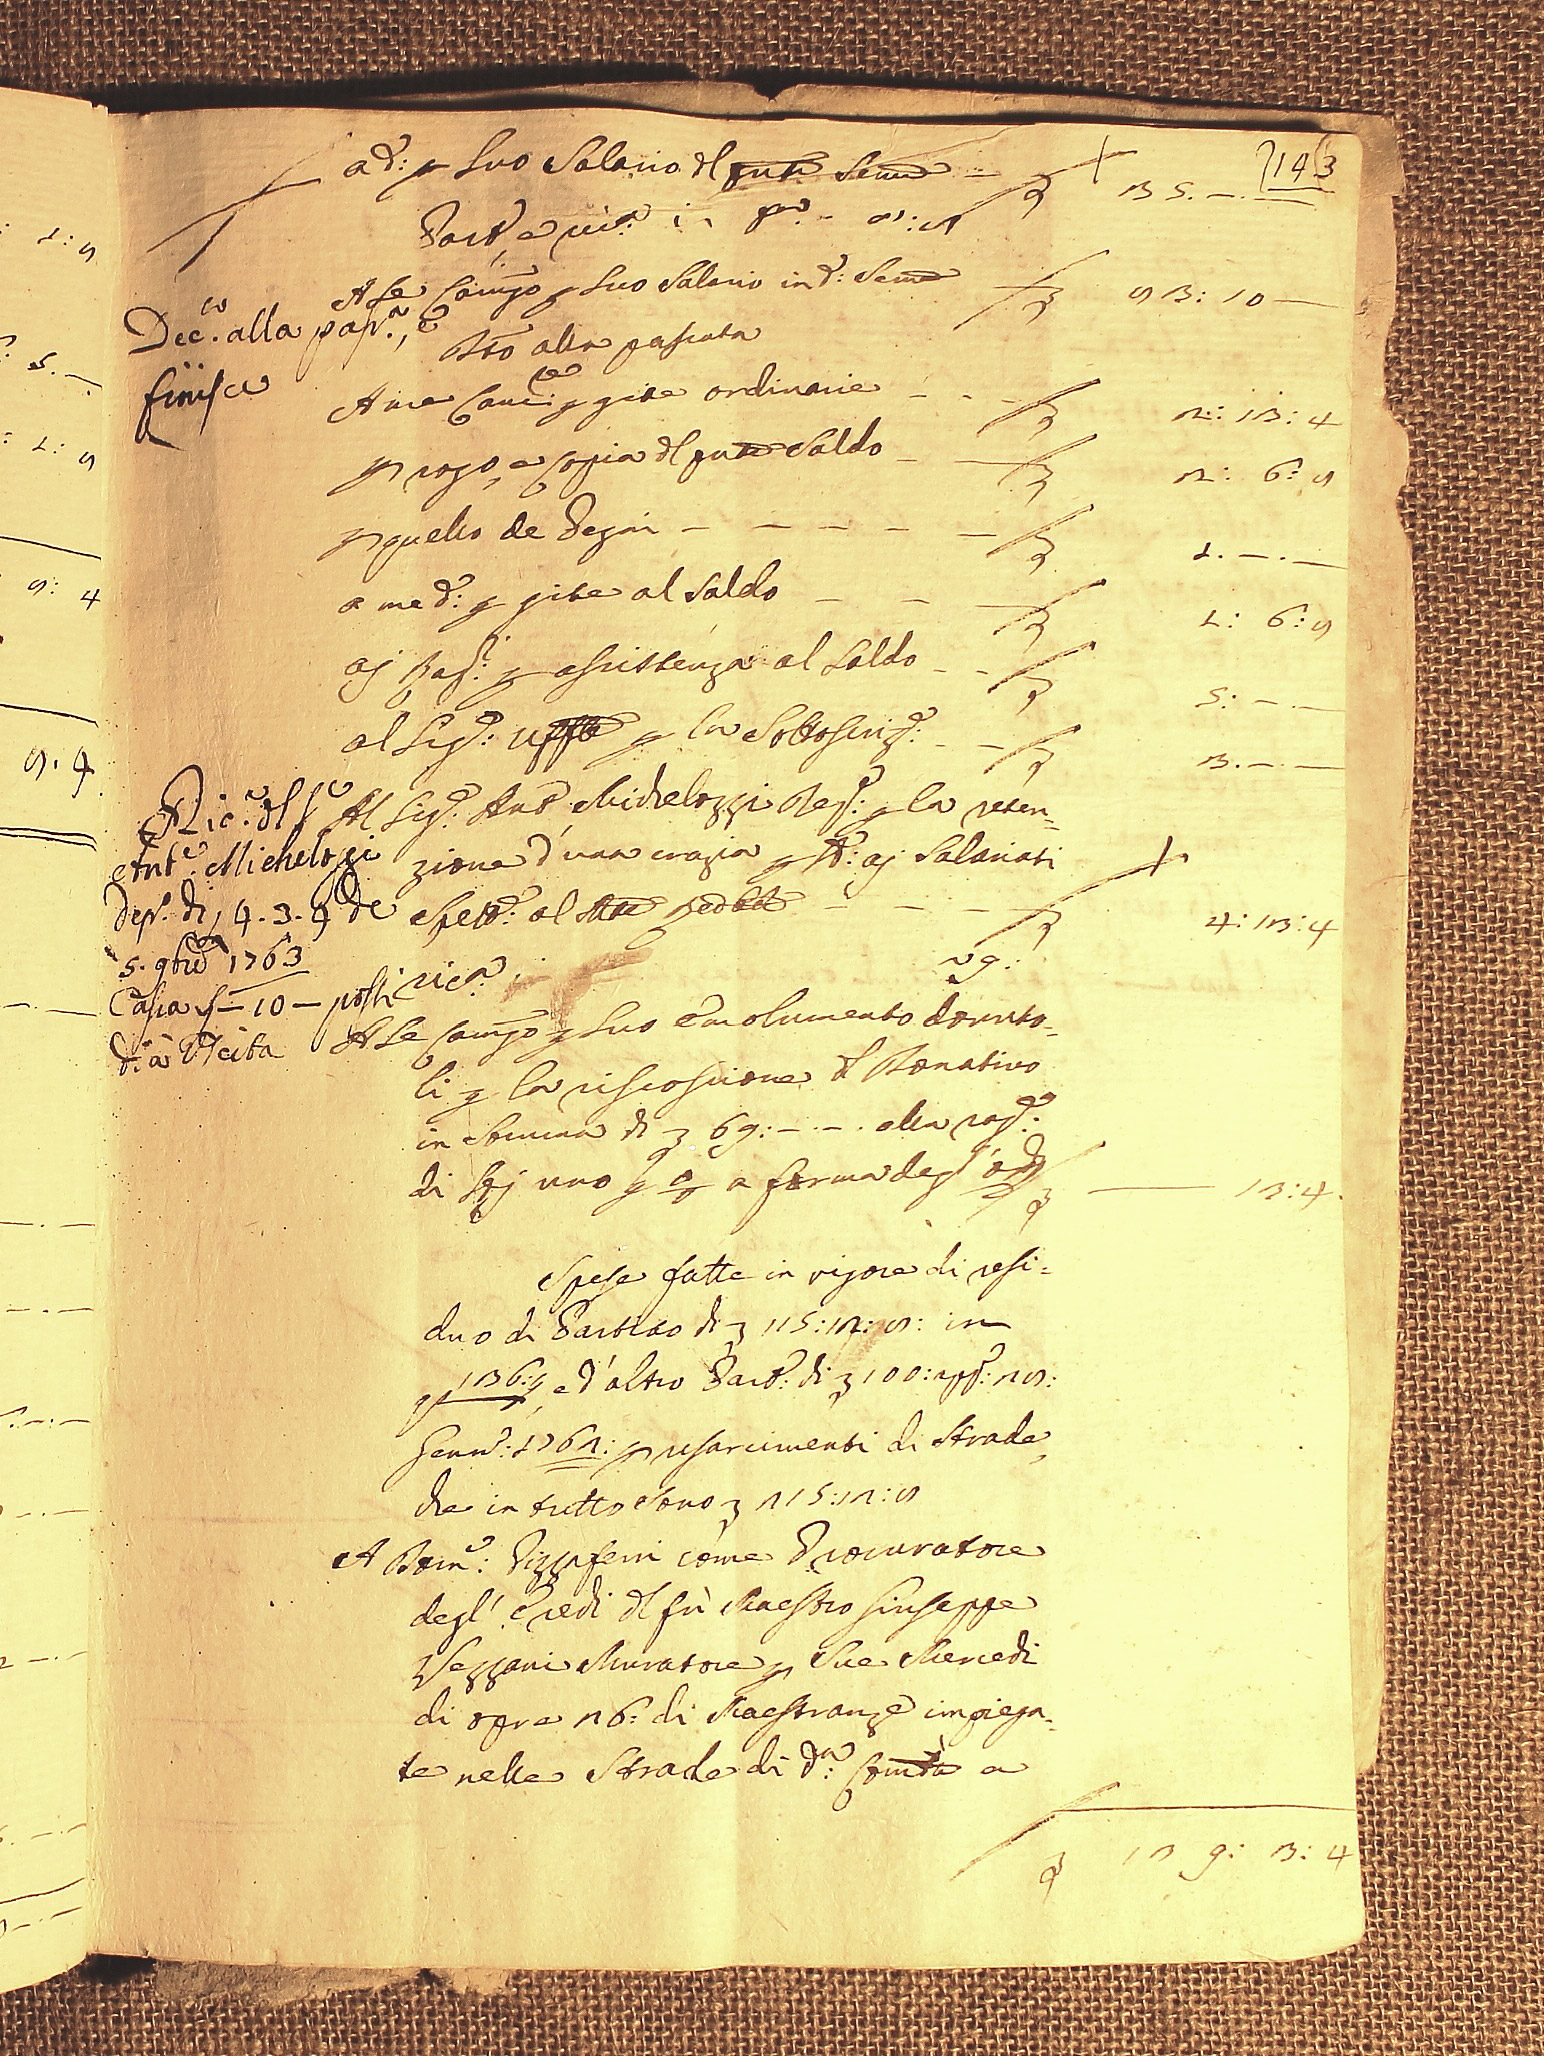 143
a d: p suo Salario del pnte Sem̃e - 35.-.-
A Se Camgo p suo Salario in d: Seme 83: 10 -
Dec.to alla pas.ta, e
finisce
Dto alla passata
A me Canc:re p gite ordinarie - - - 2: 13: 4
p rogo, e copia del pnte Saldo - 2: 6: 8
p quello de Pegni - - - - - 1.-.-
a me d: p gite al Saldo - - 1: 6: 8
aj Rag:i p assistenza al Saldo - - 5: -.-
al Sig: p la Sottoscriz: - - 3.-.-
Ric. del S.
Ant.o Michelozzi
Dep. di, 4. 3. 4 de
5. 9bre 1763
Casa 10 - posti
di a Vscita
Al Sig: Ant: Michelozzi Reg: p la reten=
zione d'una crazia p aj Salariati
Spett: al - - - 4: 13: 4
A Se Camgo p suo Emolumento dovuto=
li p la riscossione del Donativo
in Somma di 69: -.-. alla rag:
di uno p a forma degl' 13: 4.
Spese fatte in vigore di resi=
duo di Partito di 115: 12: 8: in
136: e d'altro Part: di 100: 28:
Genn: 1762: p resarcimenti di Strade,
che in tutto sono 215: 12: 8
A Dom: Pizzaferri come Procuratore
degl' Eredi del fù Maestro Giuseppe
Vezzani Muratore p Sue Mercedi
di opre 26: di Maestranze impiega=
te nelle Strade di d.a: Com.tà a
139: 3: 4